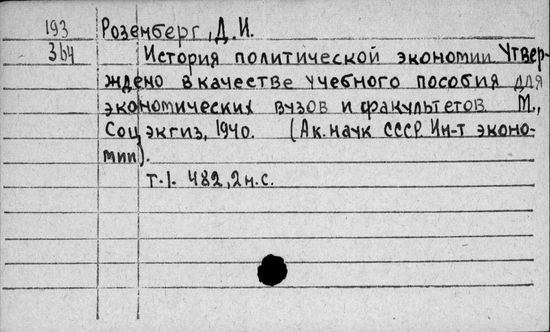 193 Розенберг, Д.И.
364 История политической экономии Утвер-
ждено в качестве учебного пособия для
экономических вузов и факультетов М.,
Соцэкгиз, 1940. (Ак. наук СССР. Ин-т эконо-
мии).
т.1. 482, 2н.с.